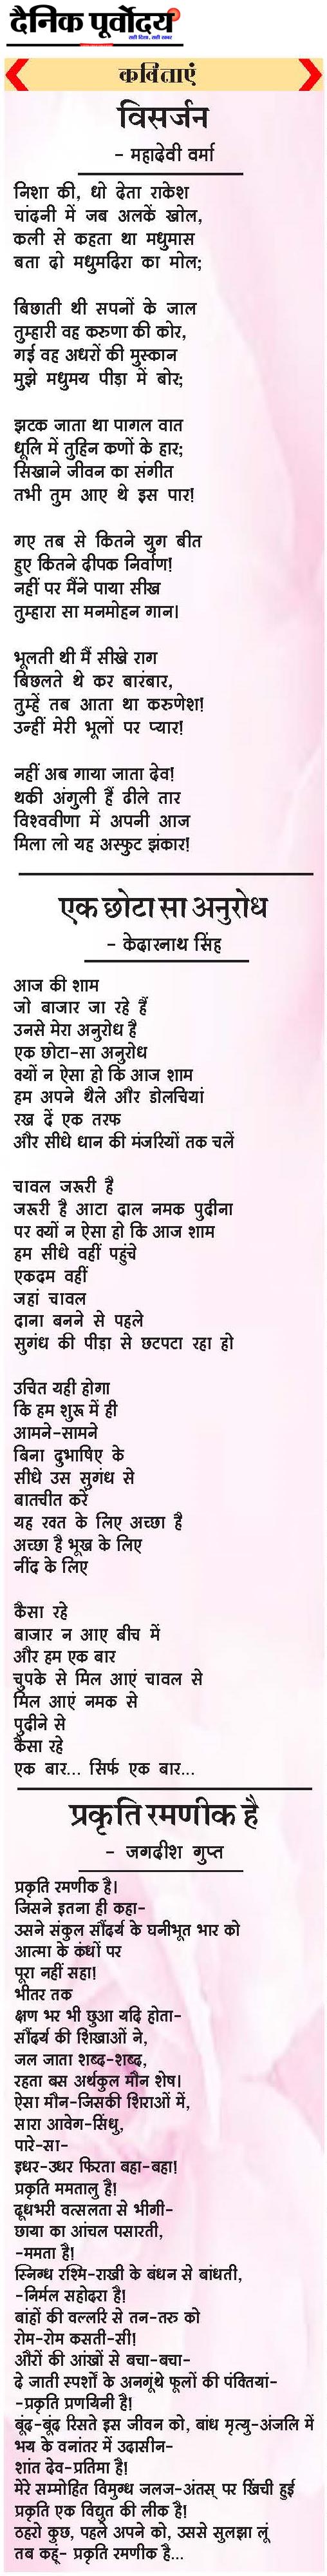 दैनिक पूर्वोदय
सही दिशा, सही खबर
कविताएं
विसर्जन
- महादेवी वर्मा
निशा की, धो देता राकेश
चांदनी में जब अलकें खोल,
कली से कहता था मधुमास
बता दो मधुमदिरा का मोल;
बिछाती थी सपनों के जाल
तुम्हारी वह करुणा की कोर,
गई वह अधरों की मुस्कान
मुझे मधुमय पीड़ा में बोर;
झटक जाता था पागल वात
धूलि में तुहिन कणों के हार;
सिखाने जीवन का संगीत
तभी तुम आए थे इस पार!
गए तब से कितने युग बीत
हुए कितने दीपक निर्वाण!
नहीं पर मैंने पाया सीख
तुम्हारा सा मनमोहन गान।
भूलती थी मैं सीखे राग
बिछलते थे कर बारंबार,
तुम्हें तब आता था करुणेश!
उन्हीं मेरी भूलों पर प्यार!
नहीं अब गाया जाता देव!
थकी अंगुली हैं ढीले तार
विश्ववीणा में अपनी आज
मिला लो यह अस्फुट झंकार!
एक छोटा सा अनुरोध
- केदारनाथ सिंह
आज की शाम
जो बाजार जा रहे हैं
उनसे मेरा अनुरोध है
एक छोटा-सा अनुरोध
क्यों न ऐसा हो कि आज शाम
हम अपने थैले और डोलचियां
रख दें एक तरफ
और सीधे धान की मंजरियों तक चलें
चावल जरूरी हैं
जरूरी है आटा दाल नमक पुदीना
पर क्यों न ऐसा हो कि आज शाम
हम सीधे वहीं पहुंचे
एकदम वहीं
जहां चावल
दाना बनने से पहले
सुगंध की पीड़ा से छटपटा रहा हो
उचित यही होगा
कि हम शुरू में ही
आमने-सामने
बिना दुभाषिए के
सीधे उस सुगंध से
बातचीत करें
यह रक्त के लिए अच्छा है
अच्छा है भूख के लिए
नींद के लिए
कैसा रहे
बाजार न आए बीच में
और हम एक बार
चुपके से मिल आएं चावल से
मिल आएं नमक से
पुदीने से
कैसा रहे
एक बार... सिर्फ एक बार...
प्रकृति रमणीक है
- जगदीश गुप्त
प्रकृति रमणीक है।
जिसने इतना ही कहा-
उसने संकुल सौंदर्य के घनीभूत भार को
आत्मा के कंधों पर
पूरा नहीं सहा!
भीतर तक
क्षण भर भी छुआ यदि होता-
सौंदर्य की शिखाओं ने,
जल जाता शब्द-शब्द,
रहता बस अर्थकुल मौन शेष।
ऐसा मौन-जिसकी शिराओं में,
सारा आवेग-सिंधु,
पारे-सा-
इधर-उधर फिरता बहा-बहा!
प्रकृति ममतालु है!
दूधभरी वत्सलता से भीगी-
छाया का आंचल पसारती,
-ममता है!
स्निग्ध रश्मि-राखी के बंधन से बांधती,
-निर्मल सहोदरा है!
बांहों की वल्लरि से तन-तरु को
रोम-रोम कसती-सी!
औरों की आंखों से बचा-बचा-
दे जाती स्पर्शों के अनगूंथे फूलों की पंक्तियां-
-प्रकृति प्रणयिनी है!
बूंद-बूंद रिसते इस जीवन को, बांध मृत्यु-अंजलि में
भय के वनांतर में उदासीन-
शांत देव-प्रतिमा है!
मेरे सम्मोहित विमुग्ध जलज-अंतस् पर खिंची हुई
प्रकृति एक विद्युत की लीक है!
ठहरो कुछ, पहले अपने को, उससे सुलझा लूं
तब कहूं- प्रकृति रमणीक है...